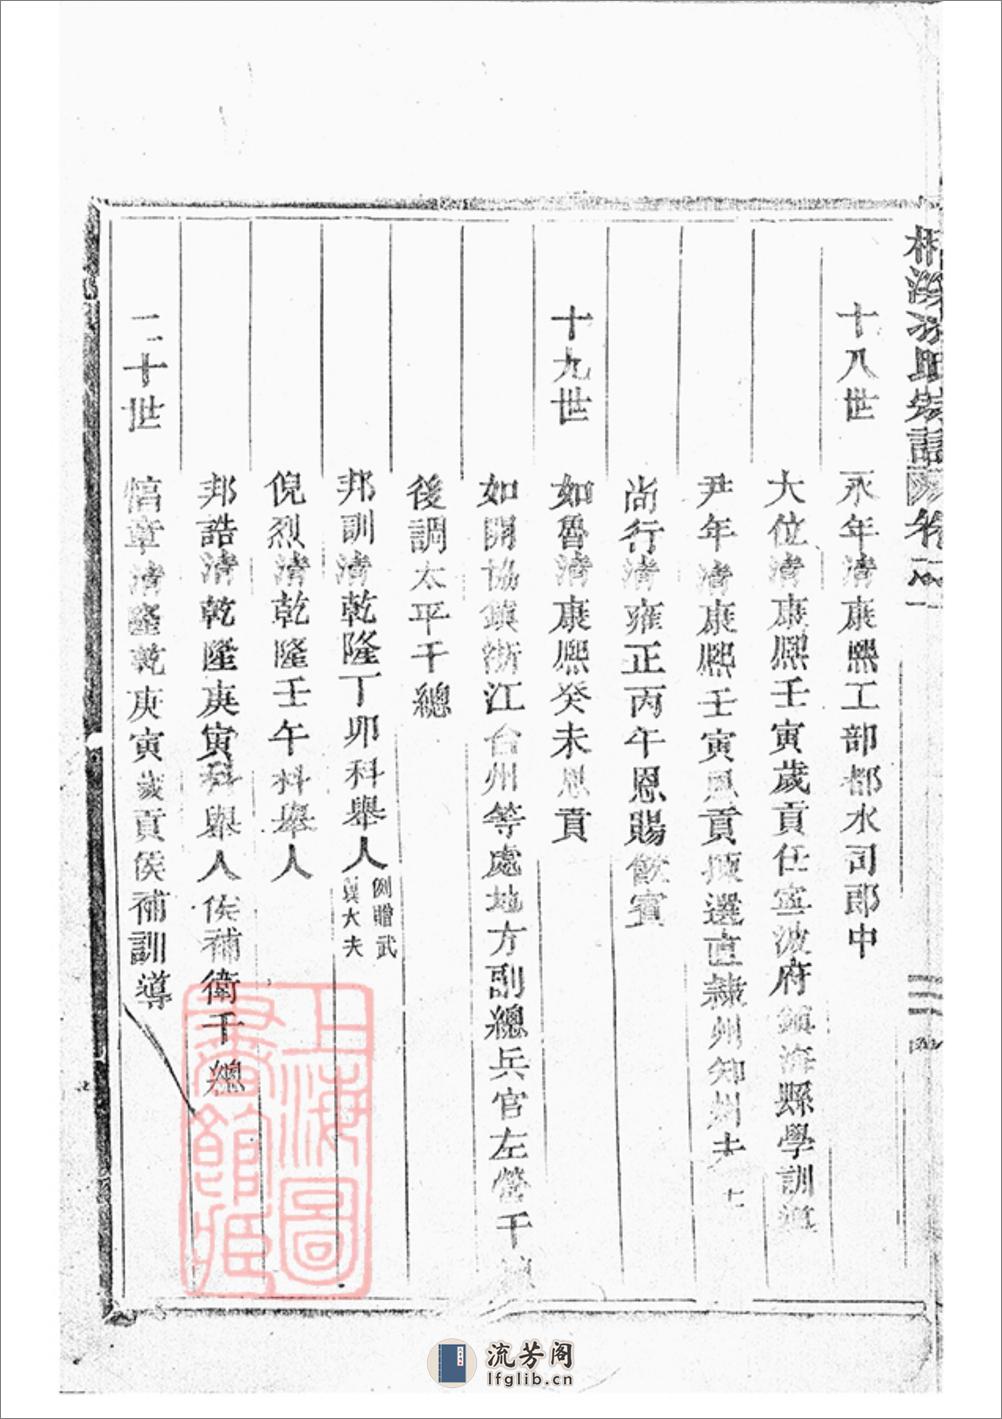 十八世 永年清康熙工部都水司郎中
大位清康熙壬寅歲貢任寧波府鎮海縣學訓導
尹年清康熙壬寅恩貢 選直隸州知州未
尚行清雍正丙午恩賜飲賓
十九世 如魯清康熙癸未恩貢
如開協鎮浙江台州等處地方副總兵官左營千
後調太平千總
邦訓清乾隆丁卯科舉人 例贈武
大夫
倪烈清乾隆壬午科舉人
邦誥清乾隆庚寅科舉人侯補衛千總
二十世 章清隆乾庚寅歲貢侯補訓導
上海圖
書館藏
流芳阁
lfglib.cn